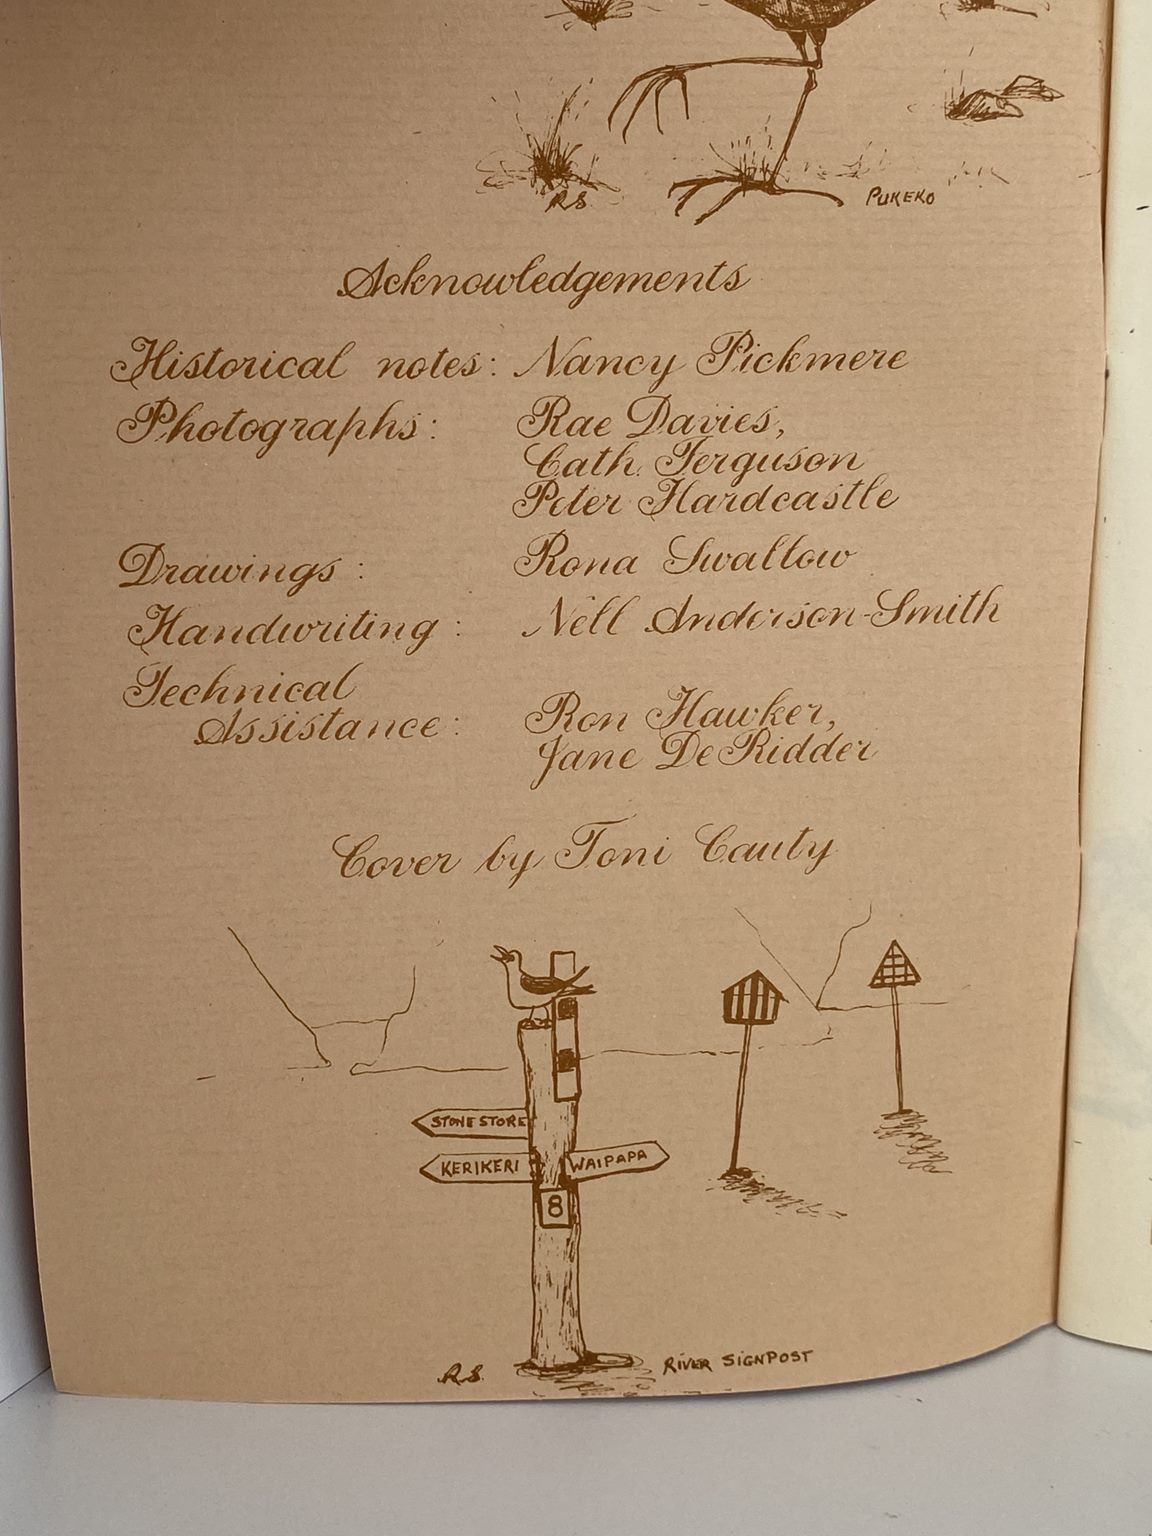 RS
PUKEKO
Acknowledgements
Historical notes: Nancy Pickmere
Photographs: Rae Davies,
Cath. Ferguson
Peter Hardcastle
Drawings: Rona Swallow
Handwriting: Nell Anderson-Smith
Technical
Assistance: Ron Hawker,
Jane De Ridder
Cover by Toni Cauty
STONE STORE
KERIKERI
WAIPAPA
8
R.S.
RIVER SIGNPOST